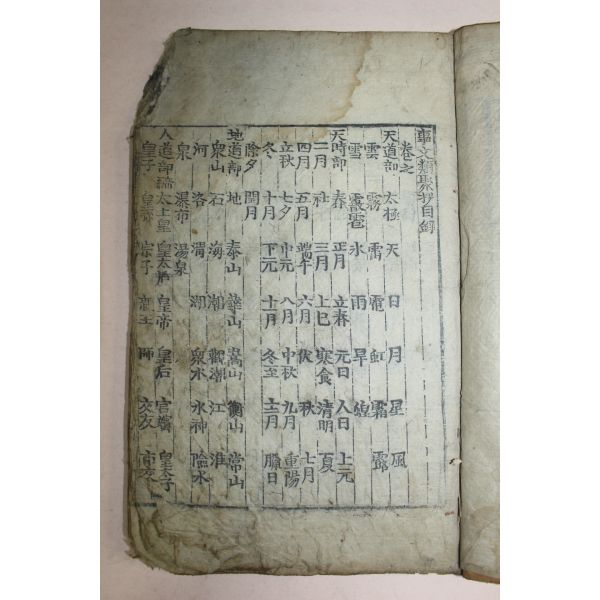 事文類聚抄目錄
卷之
天道部 太極 天 日 月 星 風
雲 霧 雷 電 虹 霜 露
雪 霰雹 氷 雨 旱 蝗
天時部 春 正月 立春 元日 人日 上元
二月 社 三月 上巳 寒食 清明 夏
四月 五月 端午 六月 伏 秋 七月
立秋 七夕 中元 八月 中秋 九月 重陽
冬 十月 下元 十一月 冬至 十二月 臘日
除夕 閏月
地道部 地 泰山 華山 嵩山 衡山 常山
衆山 石 海 潮 觀潮 江 淮
河 洛 渭 湖 衆水 水神 險水
泉 瀑布 湯泉
人道部 太上皇 皇太后 皇帝 皇后 宮嬪 皇太子
皇子 宗子 師 交友